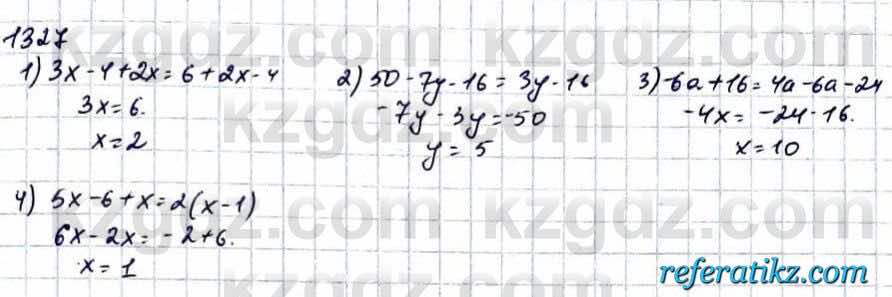 1327
1) 3x - 4 + 2x = 6 + 2x - 4
3x = 6.
x = 2
2) 50 - 7y - 16 = 3y - 16
- 7y - 3y = -50
y = 5
3) -6a + 16 = 4a - 6a - 24
-4x = -24 - 16.
x = 10
4) 5x - 6 + x = 2(x - 1)
6x - 2x = - 2 + 6.
x = 1
kzgdz.com
referatikz.com